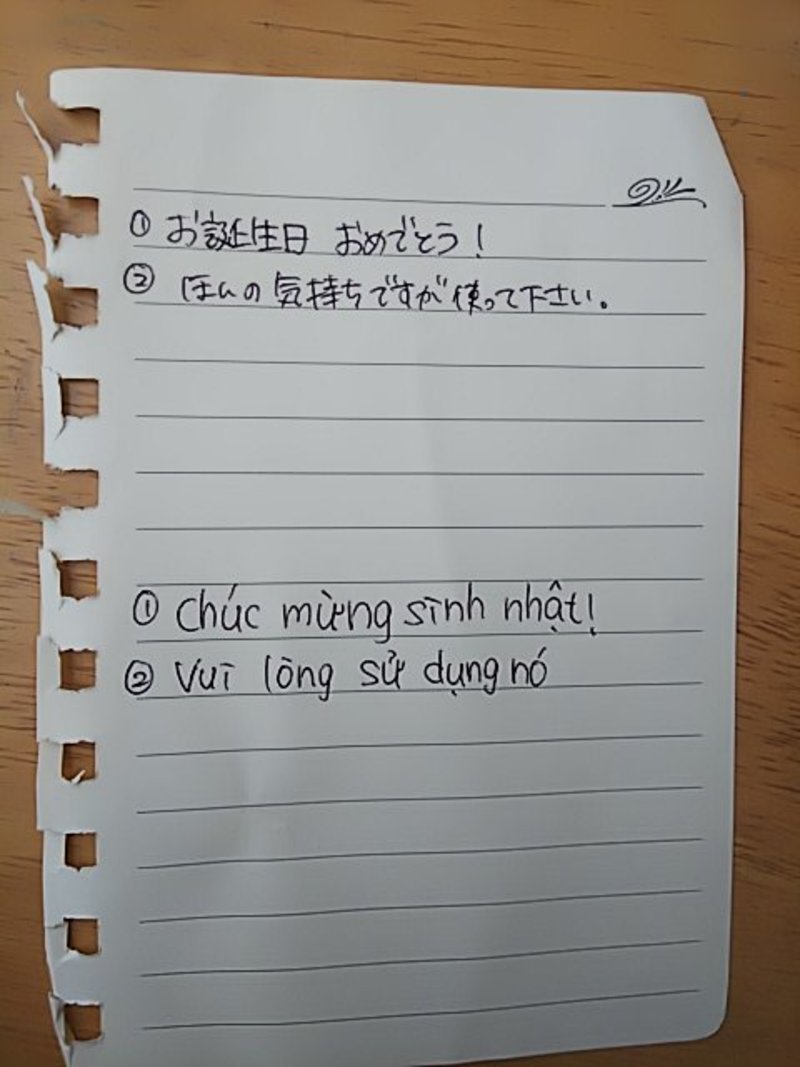 ① お誕生日 おめでとう!
② ほんの気持ちですが使って下さい。
① Chúc mừng sinh nhật!
② Vui lòng sử dụng nó